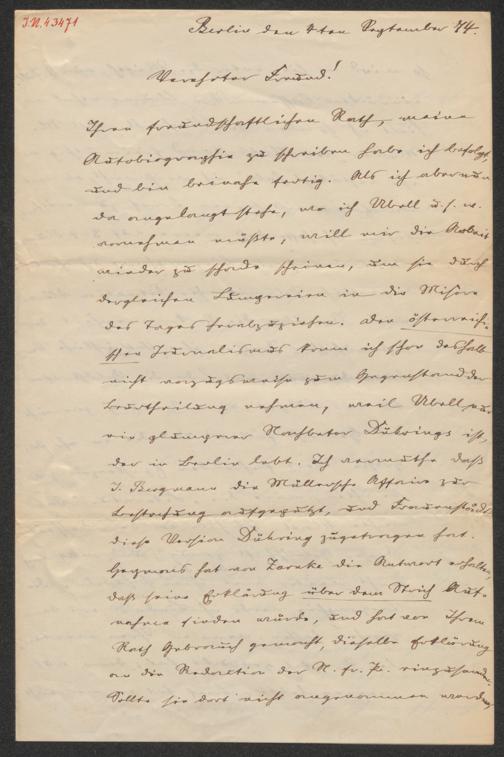 J.N. 43471
Berlin den 4ten September 74.
Verehrter Freund!
Ihren freundschaftlichen Rath, meine
Autobiographie zu schreiben habe ich befolgt,
und bin beinahe fertig. Als ich aber nun
da angelangt stehe, wo ich Ubell u. s. w.
vornehmen müßte, will mir die Arbeit
wieder zu schade scheinen, um sie durch
dergleichen Lumpereien in die Misère
des Tages herabzuziehen. Den österreich-
schen Journalismus kann ich schon deshalb
nicht vorzugsweise zum Gegenstand der
Beurtheilung nehmen, weil Ubell nur
ein Nachbeter Dührings ist,
der in Berlin lebt. Ich vermuthe daß
J. Bergmann die Müllersche Affaire zur
aufgeputzt, und Frauenstädt
diese Version Dühring zugetragen hat.
hat von Zarncke die Antwort erhalten,
daß seine Erklärung über dem Strich Auf-
nahme finden würde, und hat von Ihrem
Rath Gebrauch gemacht, dieselbe Erklärung
an die Redaction der N. fr. Pr. einzusenden.
Sollte sie dort nicht angenommen werden,